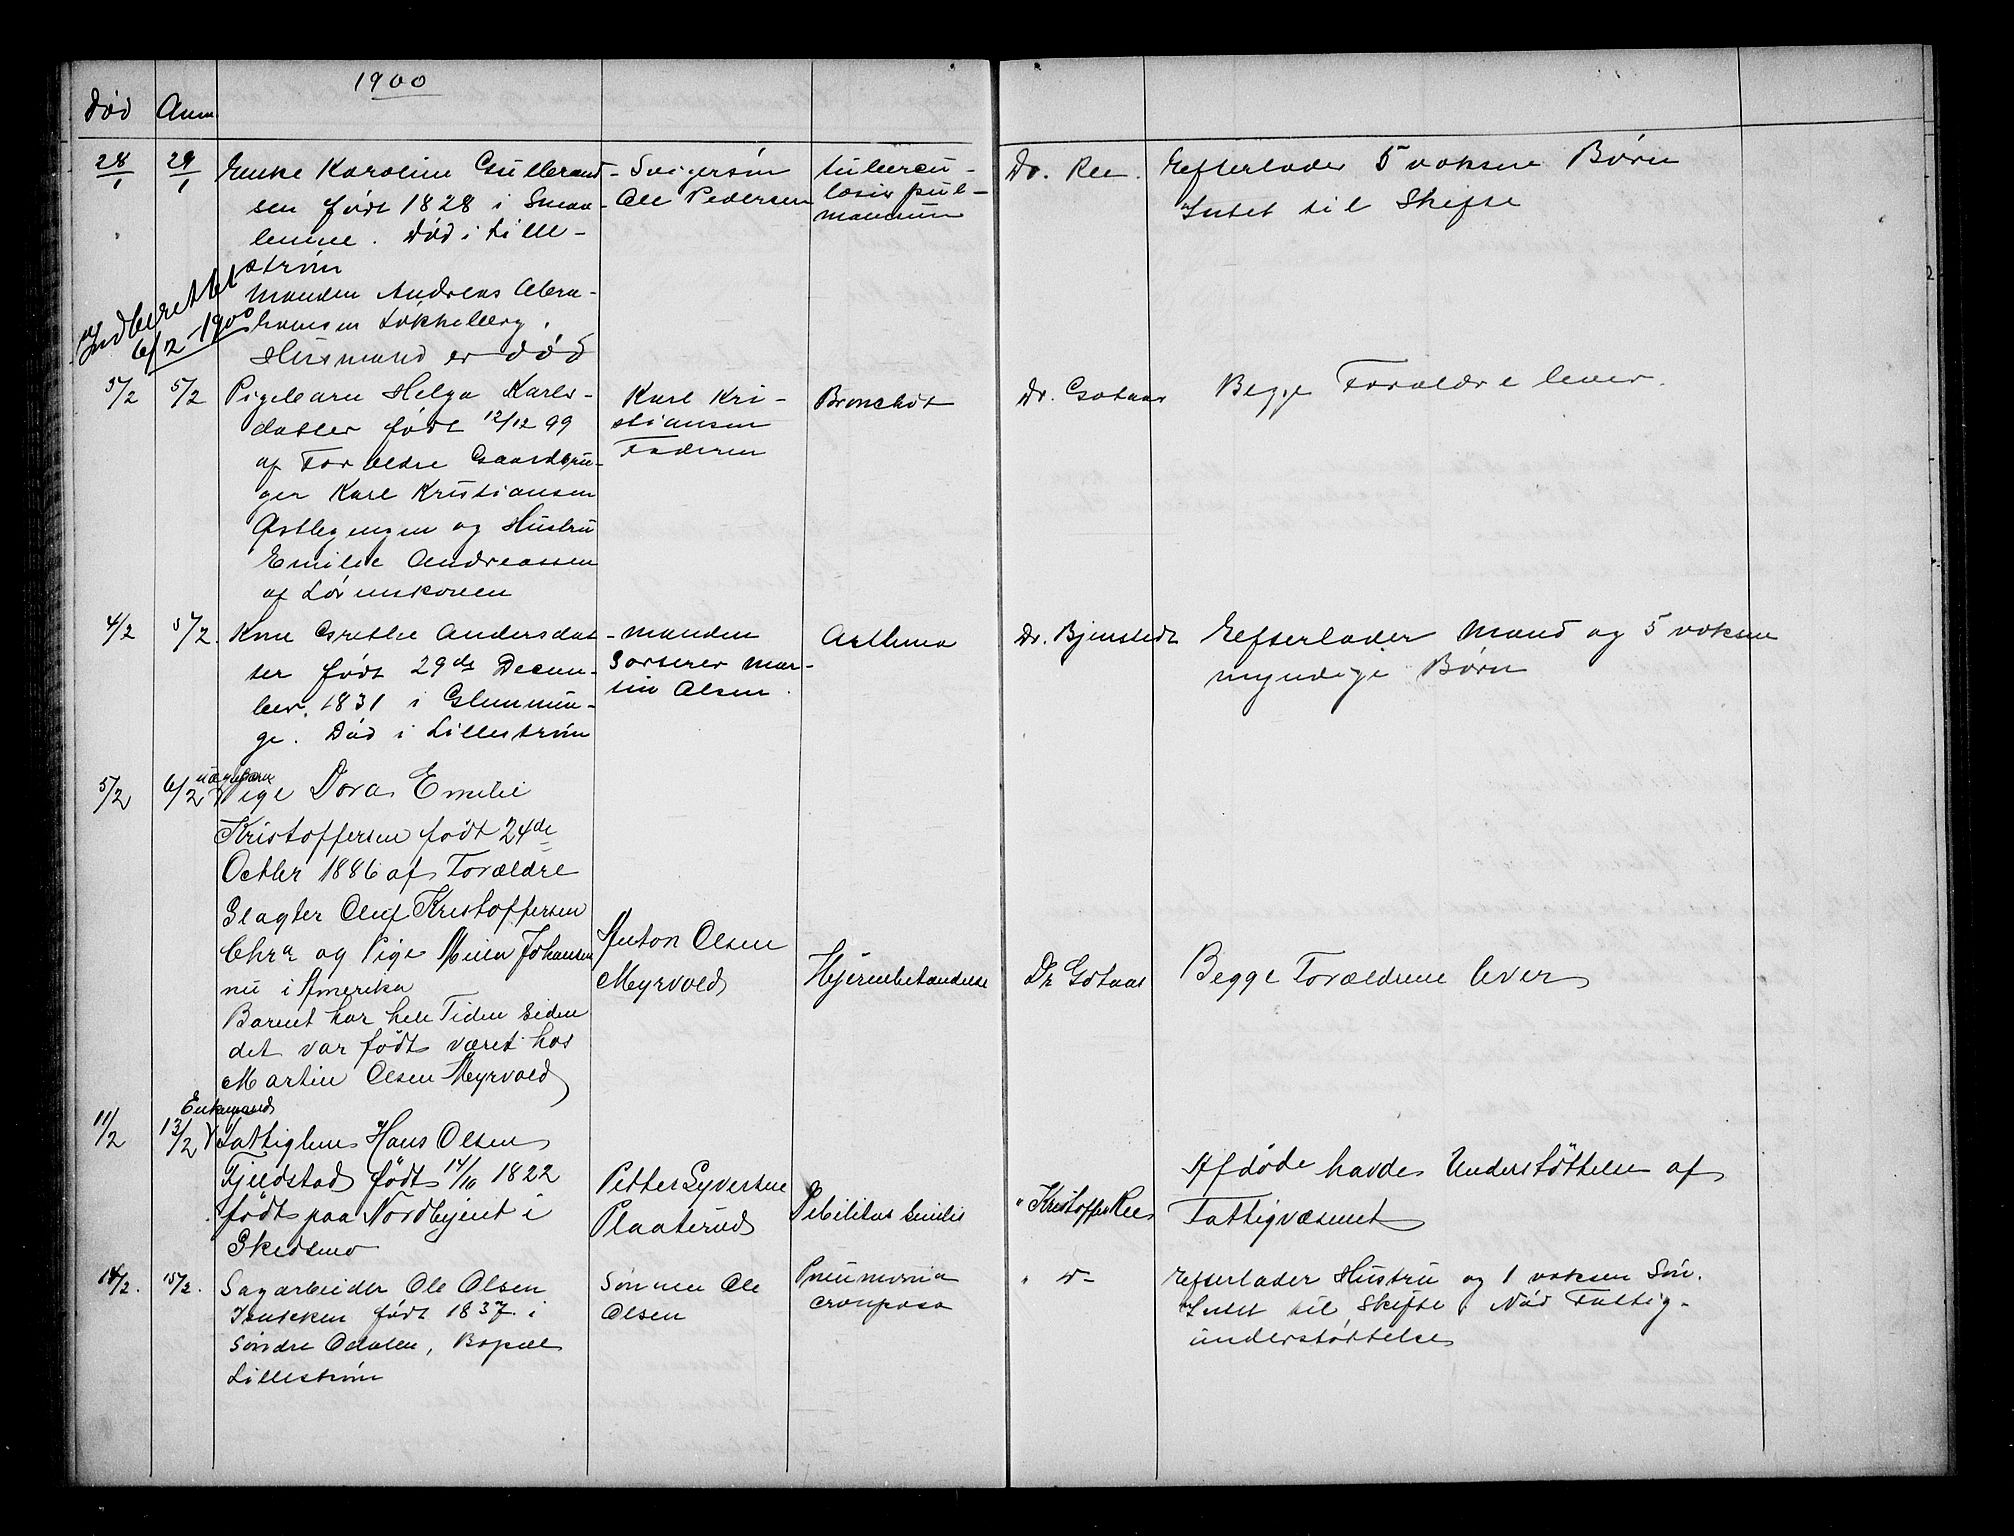 1900
Død Anm
28/1 29/1 Enke Karoline Gulbrand-
sen født 1828 i Smaa-
lenene. Død i Lille-
strøm
Manden Andreas Abra-
hamsen Løkkeberg.
Husmand er død
Svigersøn
Ole Pedersen
tubercu-
losis pul-
monum
Dr. Ree.
Efterlader 5 voksne Børn
Intet til Skifte
Indberettet
6/2-1900
3/2 5/2 Pigebarn Helga Karls-
datter født 12/12 99
af Forældre Gaardbru-
ger Karl Kristiansen
og Hustru
Emilie Andreassen
af Lørenskoven
Karl Kri-
stiansen
Faderen
Bronchit
Dr. Gotaas
Begge Forældre lever.
4/2 5/2. Kone Grethe Andersdat-
ter født 29de Decem-
ber. 1831 i Glemmin-
ge. Død i Lillestrøm
Manden
Sorterer Mar-
tin Olsen.
Asthma
Dr. Bjensted
Efterlader Mand og 5 voksne
myndige Børn
5/2 6/2 Pige Dora Emilie
Kristoffersen født 24de
Octbr 1886 af Forældre
Slagter Oluf Kristoffersen
Chra og Pige Johansen
nu i Amerika
Barnet har hele Tiden siden
det var født været hos
Martin Olsen Myrvold
Anton Olsen
Myrvold
Hjernebetændelse
Dr Gotaas
Begge Forældrene lever
Enkemand
11/2 13/2 Fattiglem Hans Olsen
Fjeldstad født 14/10 1822
født paa Nordbyeiet i
Skedsmo
Petter Syversen
Plaaterud
Debilitas Senilis
" Kristoffer Ree
Afdøde havde Understøttelse af
Fattigvæsenet
14/2. 15/2. Sagarbeider Ole Olsen
født 1837 i
Søndre Odalen, Bopæl
Lillestrøm
Sønnen Ole
Olsen
Pneumonia
crouposa
" d-
Efterlader Hustru og 1 voksen Søn.
Intet til Skifte. Nød Fattig-
understøttelse